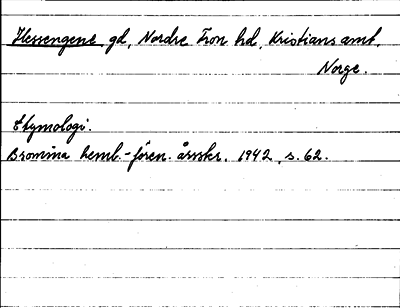 Hessengene gd, Nordre Fron hd, Kristians amt,
Norge.
Etymologi.
Bromma hemb.-fören. årsskr. 1942, s. 62.